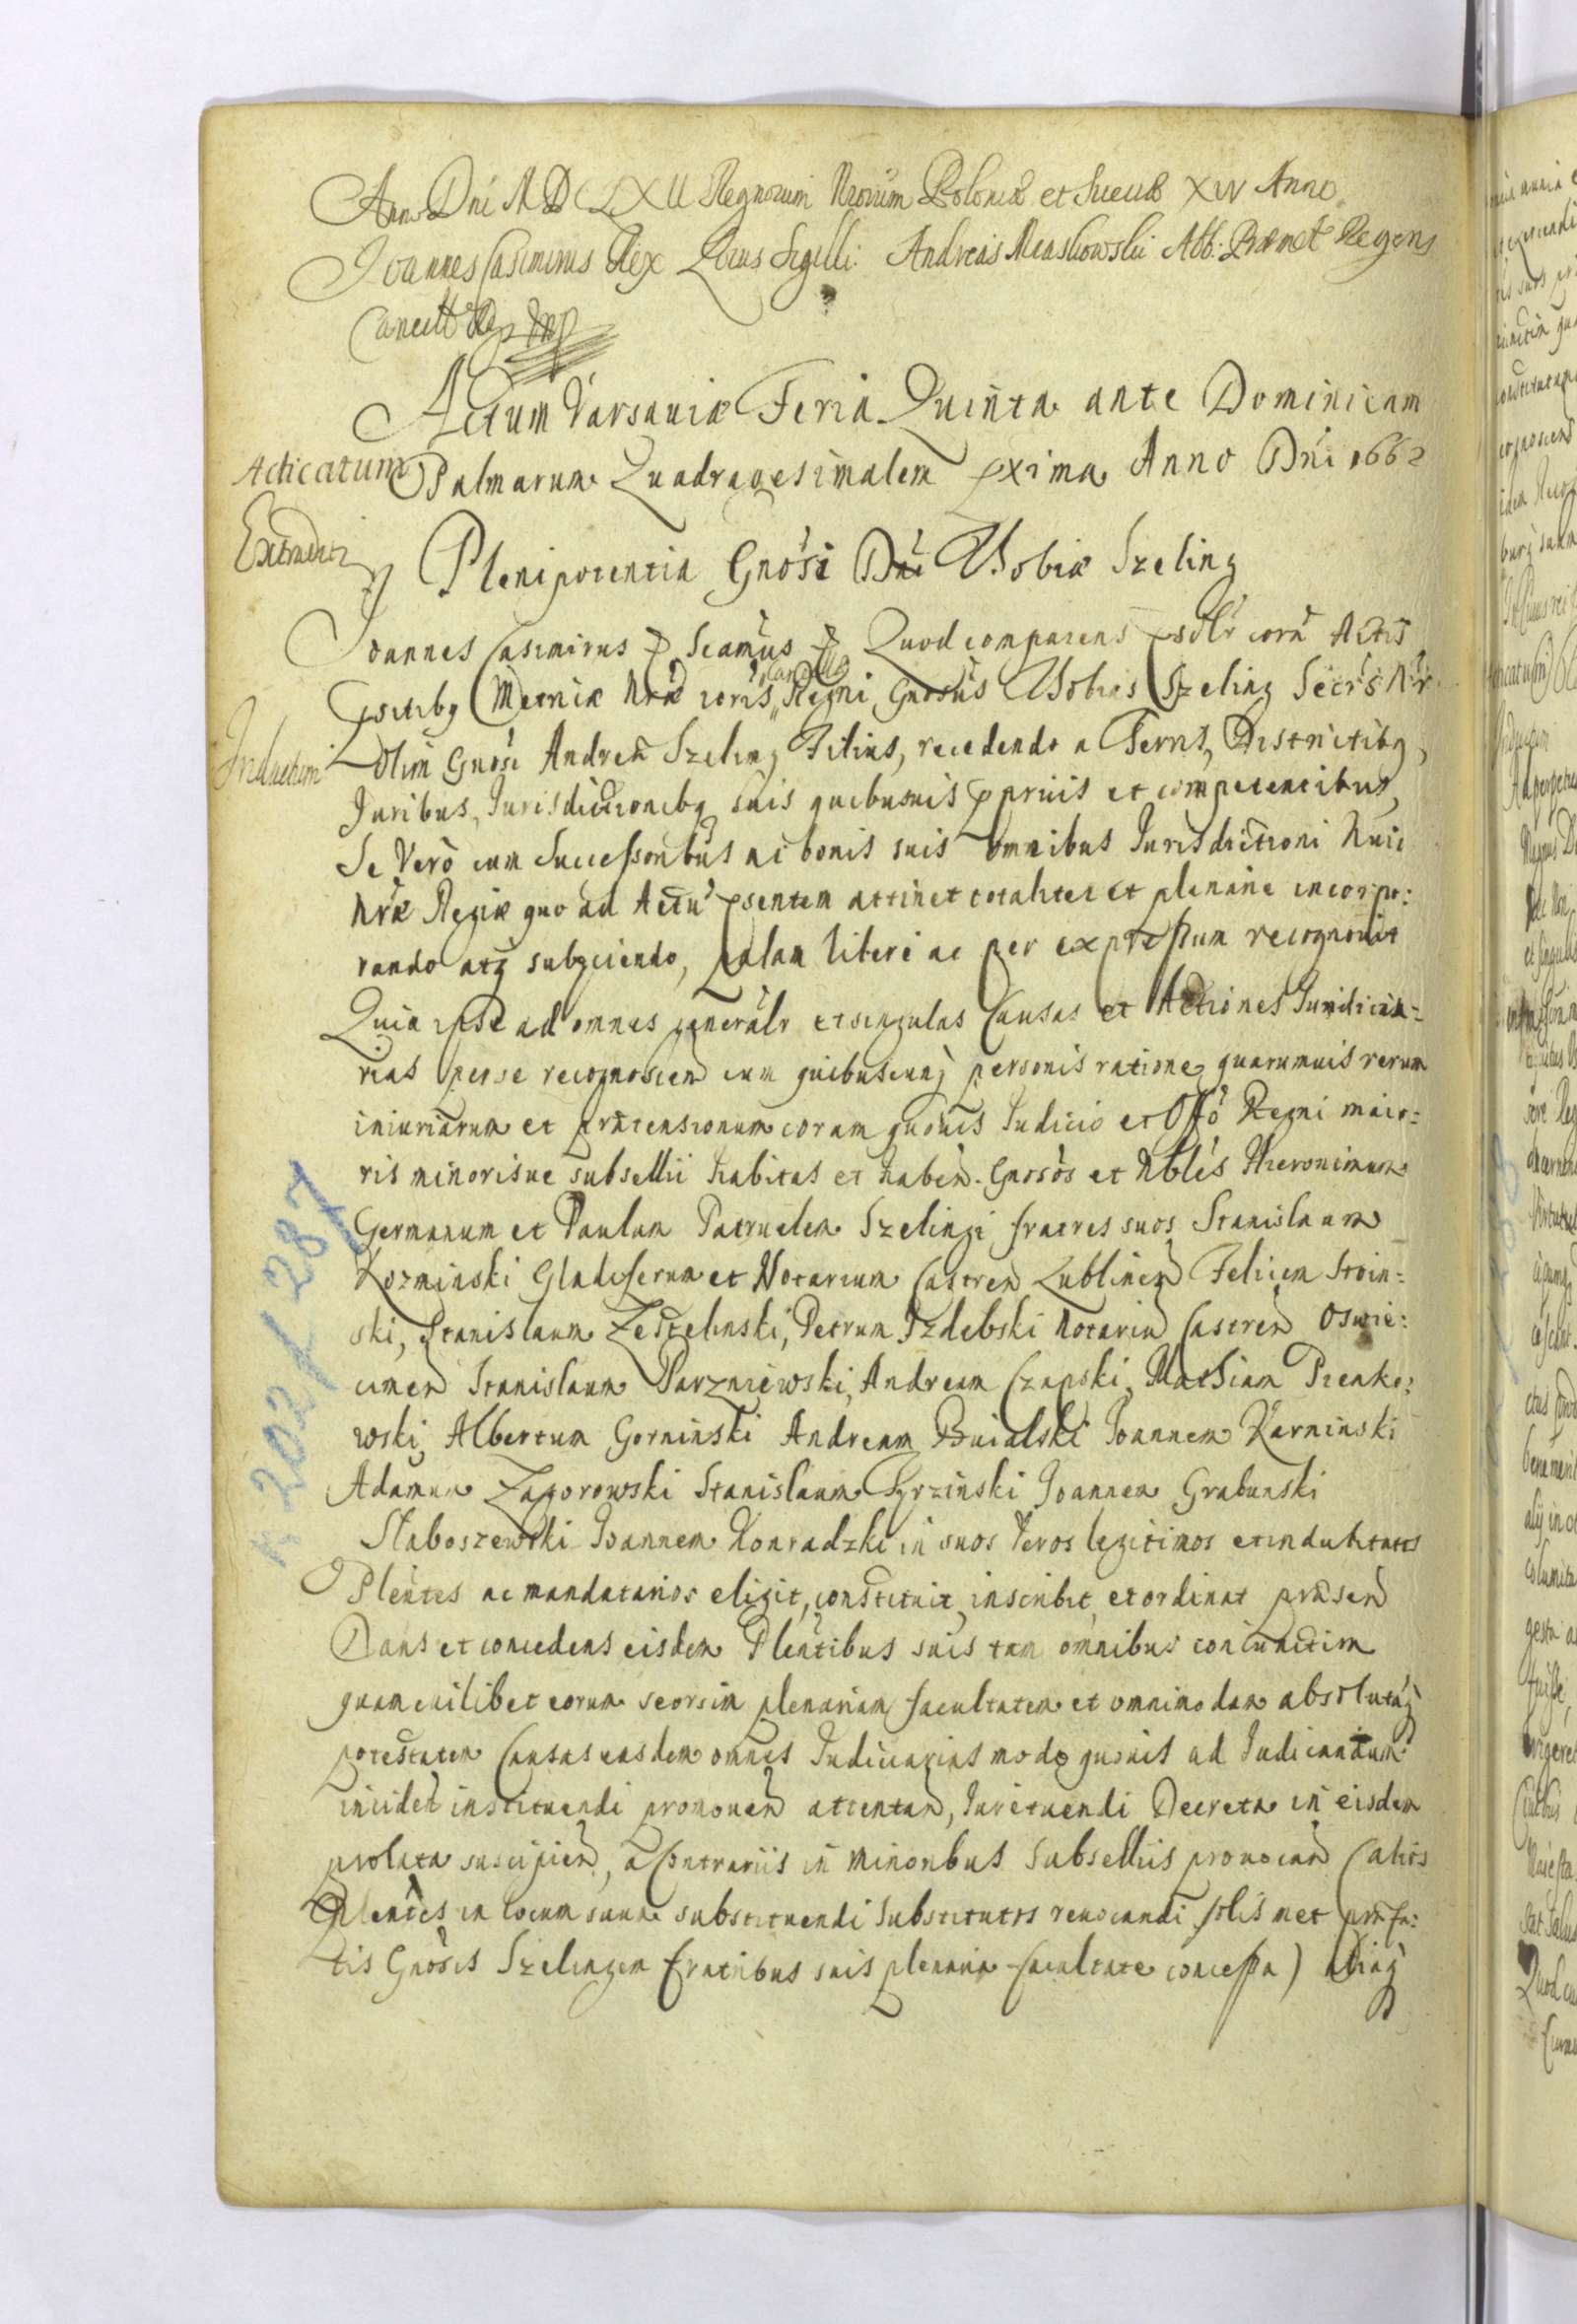 Anno Dni MDCLXII Regnorum Nrorum Poloniæ et Sueciæ XIV Anno
Joannes Casimirus Rex Locus Sigilli. Andreas Miaskowski Abb: Præmet Regens
Cancell
Actum Varsaviæ Feria Quinta ante Dominicam
Acticatum
Palmarum Quadragesimalem pxima Anno Dni 1662
Plenipotentia Gnosi Dni Tobiæ Szeling
Joannes Casimirus Scamus Quod comparens psolr corã Actis
psentibq Metricæ Nræ ioris Cancellæ Regni, Gnosus Tobias Szeling Secrs Nr
Inductum
Olim Gnosi Andreæ Szeling Filius, recedendo a Terris, Districtibq,
Juribus, Jurisdictionibq suis quibusuis ppriis et competentibus,
Se Vero cum Successoribus ac bonis suis omnibus Jurisdictioni huic
Nræ Regiæ quo ad Actũ psentem attinet totaliter et plenarie incorpo:
rando atq subyciendo, palam libere ac per expressum recognouit
Quia ipse ad omnes generalr et singulas Causas et Actiones Juridicia=
rias per se recognoscen cum quibuscunq personis ratione quarumuis rerum
iniuriarum et prætensionum coram quouis Judicio et Offo Regni maio=
ris minorisue subsellii habitas et haben. Gnosos et Nbles Hieronimum
Germanum et Paulum Patruelem Szelingi fratres suos Stanislaum
Kozminski Gladiferum et Notarium Castren Lublinen Felicem Stoin=
ski, Stanislaum Zestelinski, Petrum Izdebski Notariũ Castren Oswie:
cimen Stanislaum Parzniewski, Andream Czapski, Mathiam Pienko:
wski, Albertum Gorninski Andream Buialski Joannem Karninski
Adamum Zagorowski Stanislaum Syrzinski Joannem Grabunski
Słaboszewski Joannem Konradzki in suos Veros legitimos et indubitatos
Plentes ac mandatarios eligit, constituit, inscribit, et ordinat præsen
Dans et concedens eisdem Plentibus suis tam omnibus coniunctim
quam cuilibet eorum seorsim plenariam facultatem et omnimodam absolutaq
potestatem Causas easdem omnes Judiciarias modo quouis ad Judicandum
inciden instituendi promouen attentan, Jure tuendi Decreta in eisdem
prolata suscipien, a Contrariis in Minoribus Subselliis prouocan (alios
Plentes in locum suum substituendi Substitutos reuocandi solis met præfa:
tis Gnosis Szelingin fratribus suis plenaria facultate concessa) aliaq
K 202 / 287